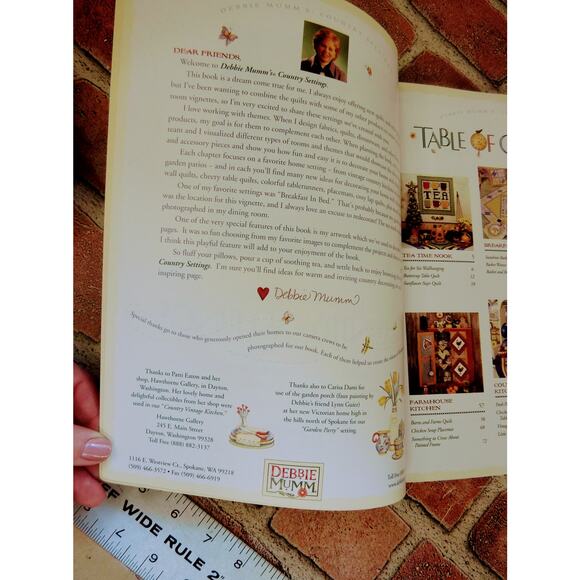 DEBBIE MUMM'S® COUNTRY SETTINGS
DEAR FRIENDS,
Welcome to Debbie Mumm's® Country Settings.
This book is a dream come true for me. I always enjoy offering new quilts
but I've been wanting to combine the quilts with some of my other
room vignettes, so I'm very excited to share these settings we've created
I love working with themes. When I design fabrics, quilts,
products, my goal is for them to complement each other. When planning
team and I visualized different types of rooms and themes that would
and accessory pieces and show you how fun and easy it is to decorate your home
Each chapter focuses on a favorite home setting – from vintage country
garden patios – and in each you'll find many new ideas for decorating your
wall quilts, cheery table quilts, colorful tablerunners, placemats, cozy lap quilts,
One of my favorite settings was "Breakfast In Bed." That's probably because
was the location for this vignette, and I always love an excuse to redecorate!
photographed in my dining room.
One of the very special features of this book is my artwork which we've used
pages. It was so fun choosing from my favorite images to complement the projects and
I think this playful feature will add to your enjoyment of the book.
So fluff your pillows, pour a cup of soothing tea, and settle back to enjoy
Country Settings. I'm sure you'll find ideas for warm and inviting country decorating
inspiring page.
Debbie Mumm
Special thanks go to those who generously opened their homes to our camera crews to be
photographed for our book. Each of them helped us create
Thanks to Patti Eaton and her
shop, Hawthorne Gallery, in Dayton,
Washington. Her lovely home and
delightful collectibles from her shop were
used in our "Country Vintage Kitchen."
Hawthorne Gallery
245 E. Main Street
Dayton, Washington 99328
Toll Free (888) 882-3137
Thanks also to Carisa Dans for
use of the garden porch (faux painting by
Debbie's friend Lynn Guier)
at her new Victorian home high in
the hills north of Spokane for our
"Garden Party" setting.
1116 E. Westview Ct., Spokane, WA 99218
(509) 466-3572 • Fax (509) 466-6919
DEBBIE
MUMM
Toll Free
TABLE OF C
TEA
TEA TIME NOOK 5
Tea for Six Wallhanging 6
Buttercup Table Quilt 12
Sunflower Stars Quilt 18
BREAKF
FARMHOUSE
KITCHEN 57
Barns and Farms Quilt 58
Chicken Soup Placemat 68
Something to Crow About
Painted Frames 72
COU
OF WIDE RULE 2"
5 6 7 8 9